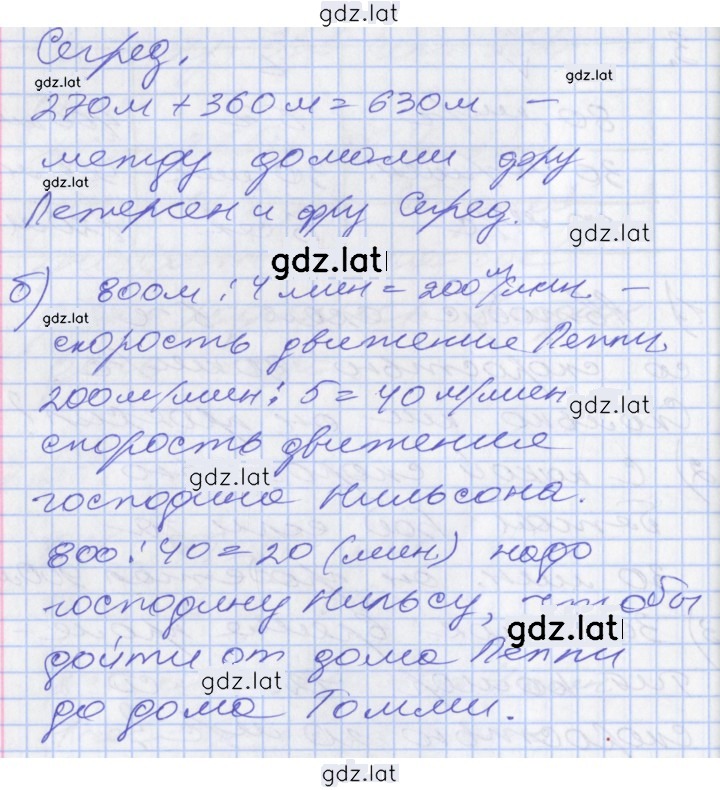 gdz.lat
Сегред.
gdz.lat
gdz.lat
270м + 360м = 630м —
между домами фру
gdz.lat
Петерсен и фру Сегред.
gdz.lat
gdz.lat
б) 800м : 4 мин = 200 м/мин. —
gdz.lat
скорость движения Пеппи.
200м/мин : 5 = 40 м/мин
gdz.lat
скорость движения
gdz.lat
господина Нильсона.
800 : 40 = 20 (мин) надо
господину Нильсу, чтобы
gdz.lat
дойти от дома Пеппи
gdz.lat
до дома Томми.
gdz.lat